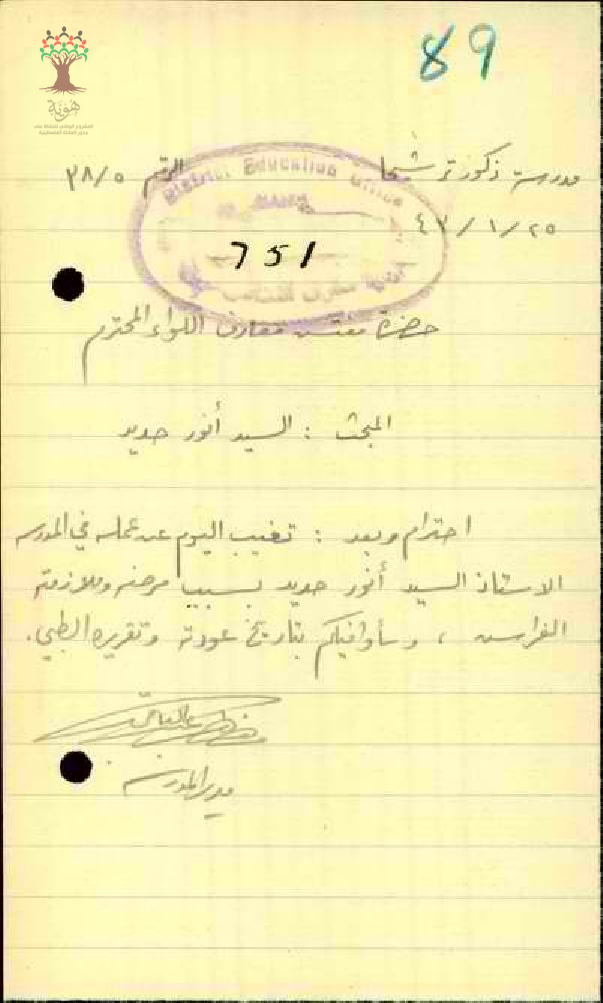 89
هوية
مدرسة ذكور ترشيحا الرقم ٣٨/٥
District Education Office
٤٧/١/٢٥
751
حضرة مفتش معارف اللواء المحترم
المبحث : السيد أنور حديد
احترام وبعد : تغيب اليوم عن عمله في المدرسة
الاستاذ السيد أنور حديد بسبب مرضه وملازمته
الفراش ، وسأوافيكم بتاريخ عودته وتقريره الطبي .
مدير المدرسة